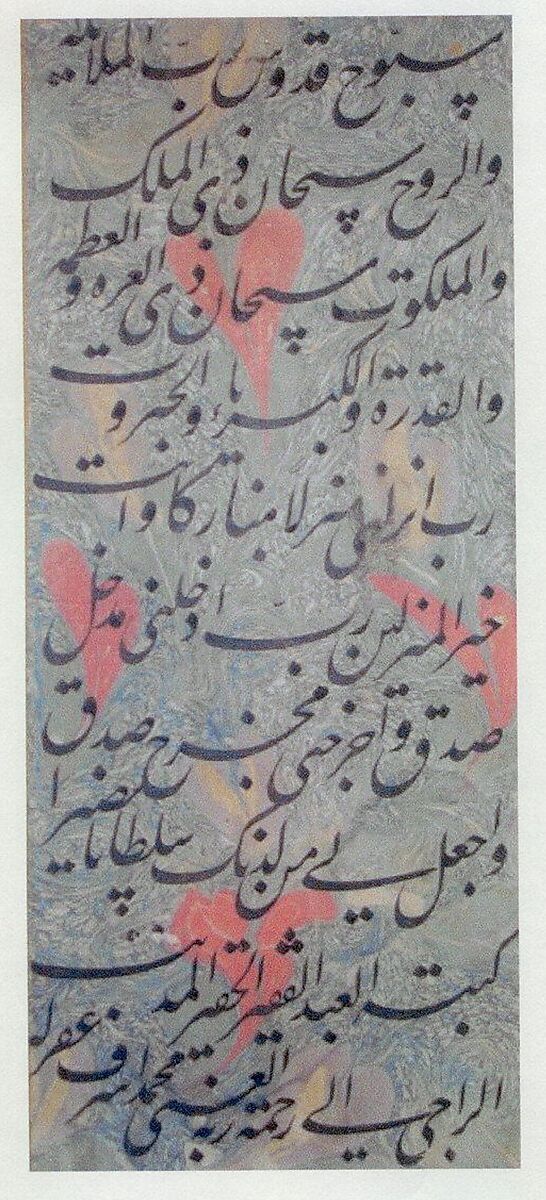 سبوح قدوس رب الملائكة
والروح سبحان ذی الملك
والملكوت سبحان ذی العزه و العظمه
والقدرة والكبرياء والجبروت
رب انزلنی منزلا مباركا وانت
خير المنزلين رب ادخلنی مدخل
صدق واخرجنی مخرج صدق
واجعل لی من لدنك سلطانا نصيرا
كتبه العبد الفقير الحقير المذنب
الراجی الی رحمة ربه الغنی محمد اشرف غفر له